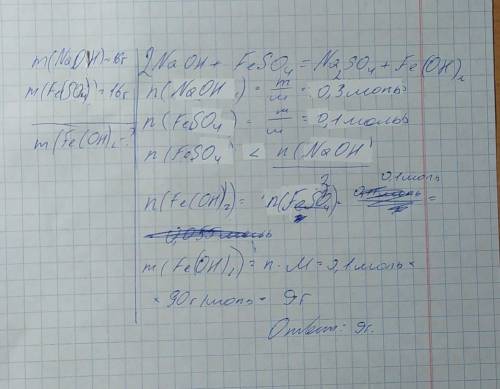 m(NaOH)=16г
m(FeSO4)=16г
m(Fe(OH)2-?
2NaOH + FeSO4 = Na2SO4 + Fe(OH)2
n(NaOH) = m/M = 0,3моль
n(FeSO4) = m/M = 0,1моль
n(FeSO4) < n(NaOH)
2
n(Fe(OH)2) = n(FeSO4) = 0,1моль =
m(Fe(OH)2) = n · M = 0,1моль ×
× 90г/моль = 9г
Ответ: 9г.